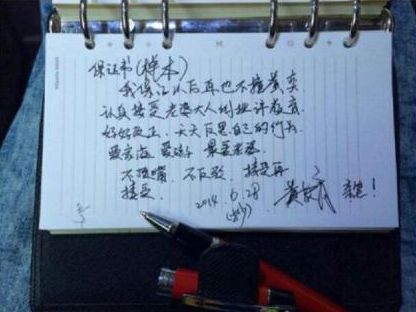 保证书(样本)
我保证以后再也不撞黄灾
认真接受老婆大人的批评教育
好好改正、天天反思自己的行为
爱家庭 爱孩子 最爱老婆
不顶嘴 不反驳 接受再
接受
2014.6.28
亲笔!